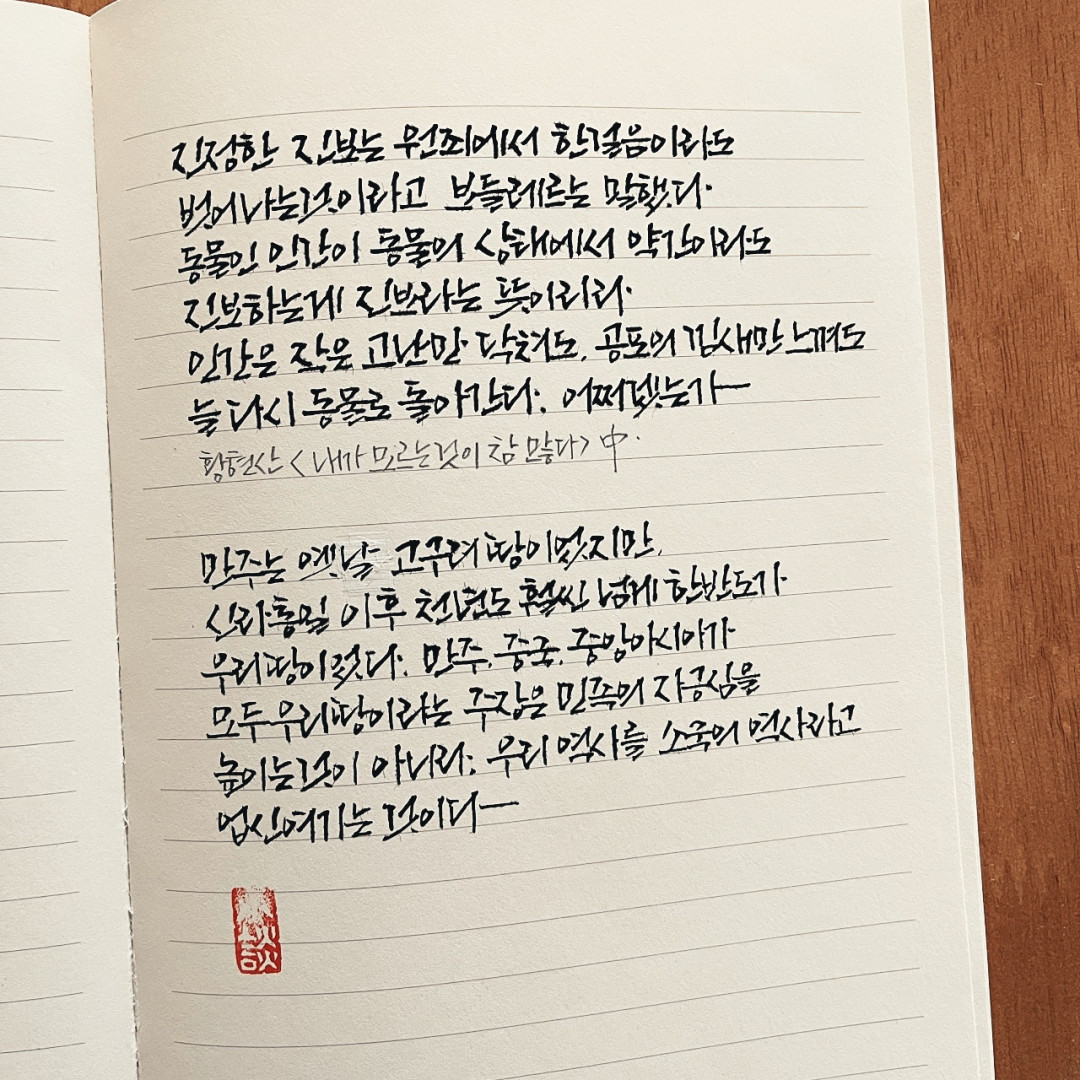 진정한 진보는 원죄에서 한걸음이라도
벗어나는것이라고 보들레르는 말했다.
동물인 인간이 동물의 상태에서 약간이라도
진보하는게 진보라는 뜻이리라.
인간은 작은 고난만 닥쳐도, 공포의 낌새만 느껴도
늘 다시 동물로 돌아간다. 어쩌겠는가—
황현산 <내가 모르는것이 참 많다> 中.
만주는 옛날 고구려땅이었지만,
신라통일 이후 천년도 훨씬 넘게 한반도가
우리땅이었다. 만주, 중국, 중앙아시아가
모두 우리땅이라는 주장은 민족의 자긍심을
높이는것이 아니라, 우리 역사를 소국의 역사라고
업신여기는 것이다—